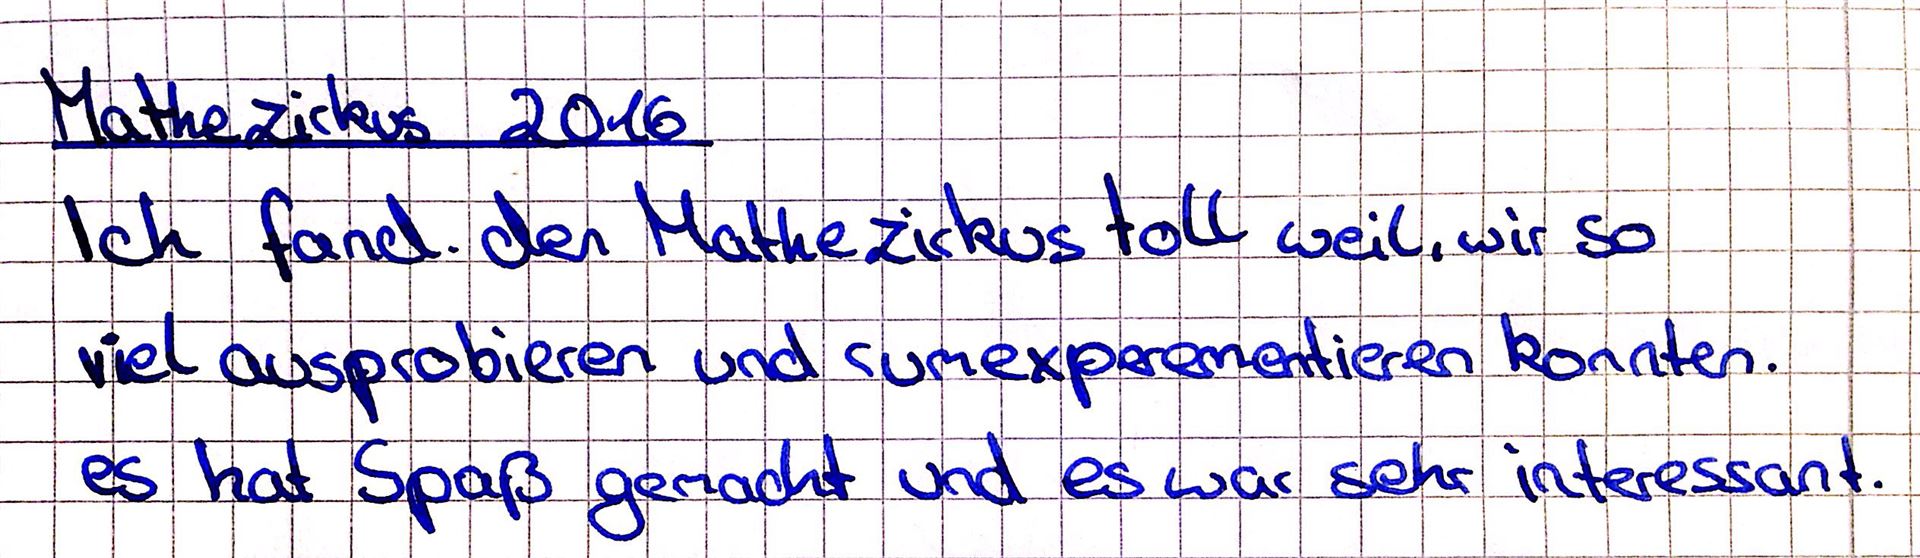 Mathezirkus 2016
Ich fand. den Mathezirkus toll weil, wir so
viel ausprobieren und rumexperementieren konnten.
es hat Spaß gemacht und es war sehr interessant.